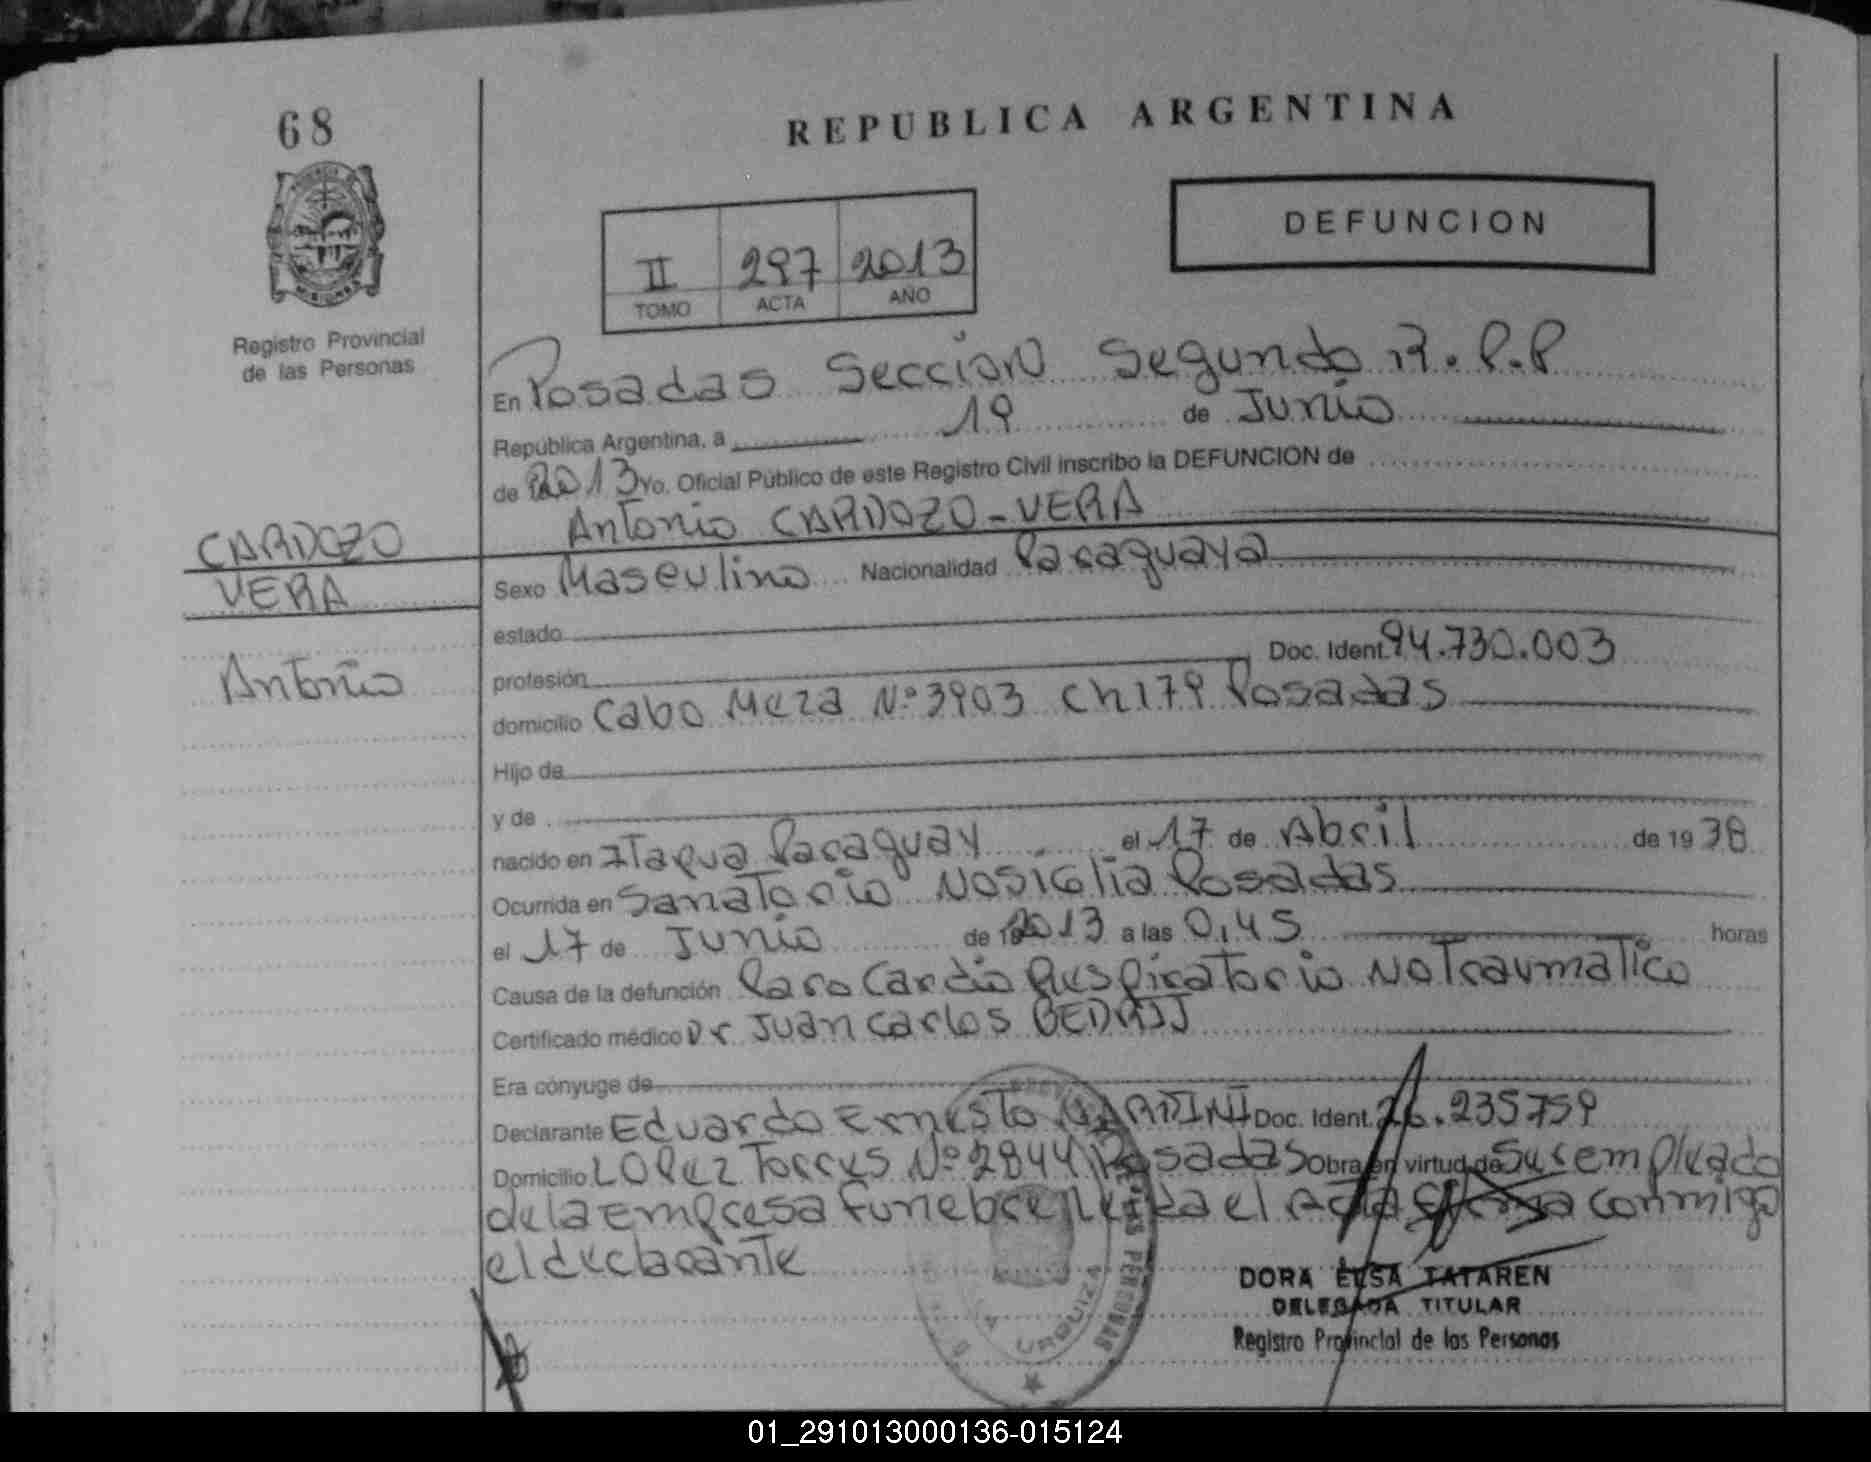 68
REPUBLICA ARGENTINA
DEFUNCION
II 297 2013
TOMO ACTA AÑO
Registro Provincial
de las Personas
En Posadas Sección Segunda R.P.P
Republica Argentina, a 19 de Junio
de 2013 Yo. Oficial Público de este Registro Civil inscribo la DEFUNCION de
Antonio CARDOZO-VERA
CARDOZO
VERA
Antonio
Sexo Masculino Nacionalidad Paraguaya
estado
profesión Doc. Ident. 94.730.003
domicilio Cabo Meza Nº 3903 Ch179 Posadas
Hijo de
y de
nacido en Itagua Paraguay el 17 de Abril de 19 38
Ocurrida en Sanatorio NOSIGlia Posadas
el 17 de Junio de 2013 a las 0,45 horas
Causa de la defunción Paro Cardio Respiratorio NoTraumatico
Certificado médico Dr Juan Carlos
Era cónyuge de
Declarante Eduardo Ernesto Doc. Ident. 26.235759
Domicilio LOPez Torres Nº 2844 Posadas Obra en virtud de Ser empleado
de la Empresa Funebre el Acta conmigo
el declarante
URQUIZA
DORA ELSA TATAREN
DELEGADA TITULAR
Registro Provincial de las Personas
01_291013000136-015124